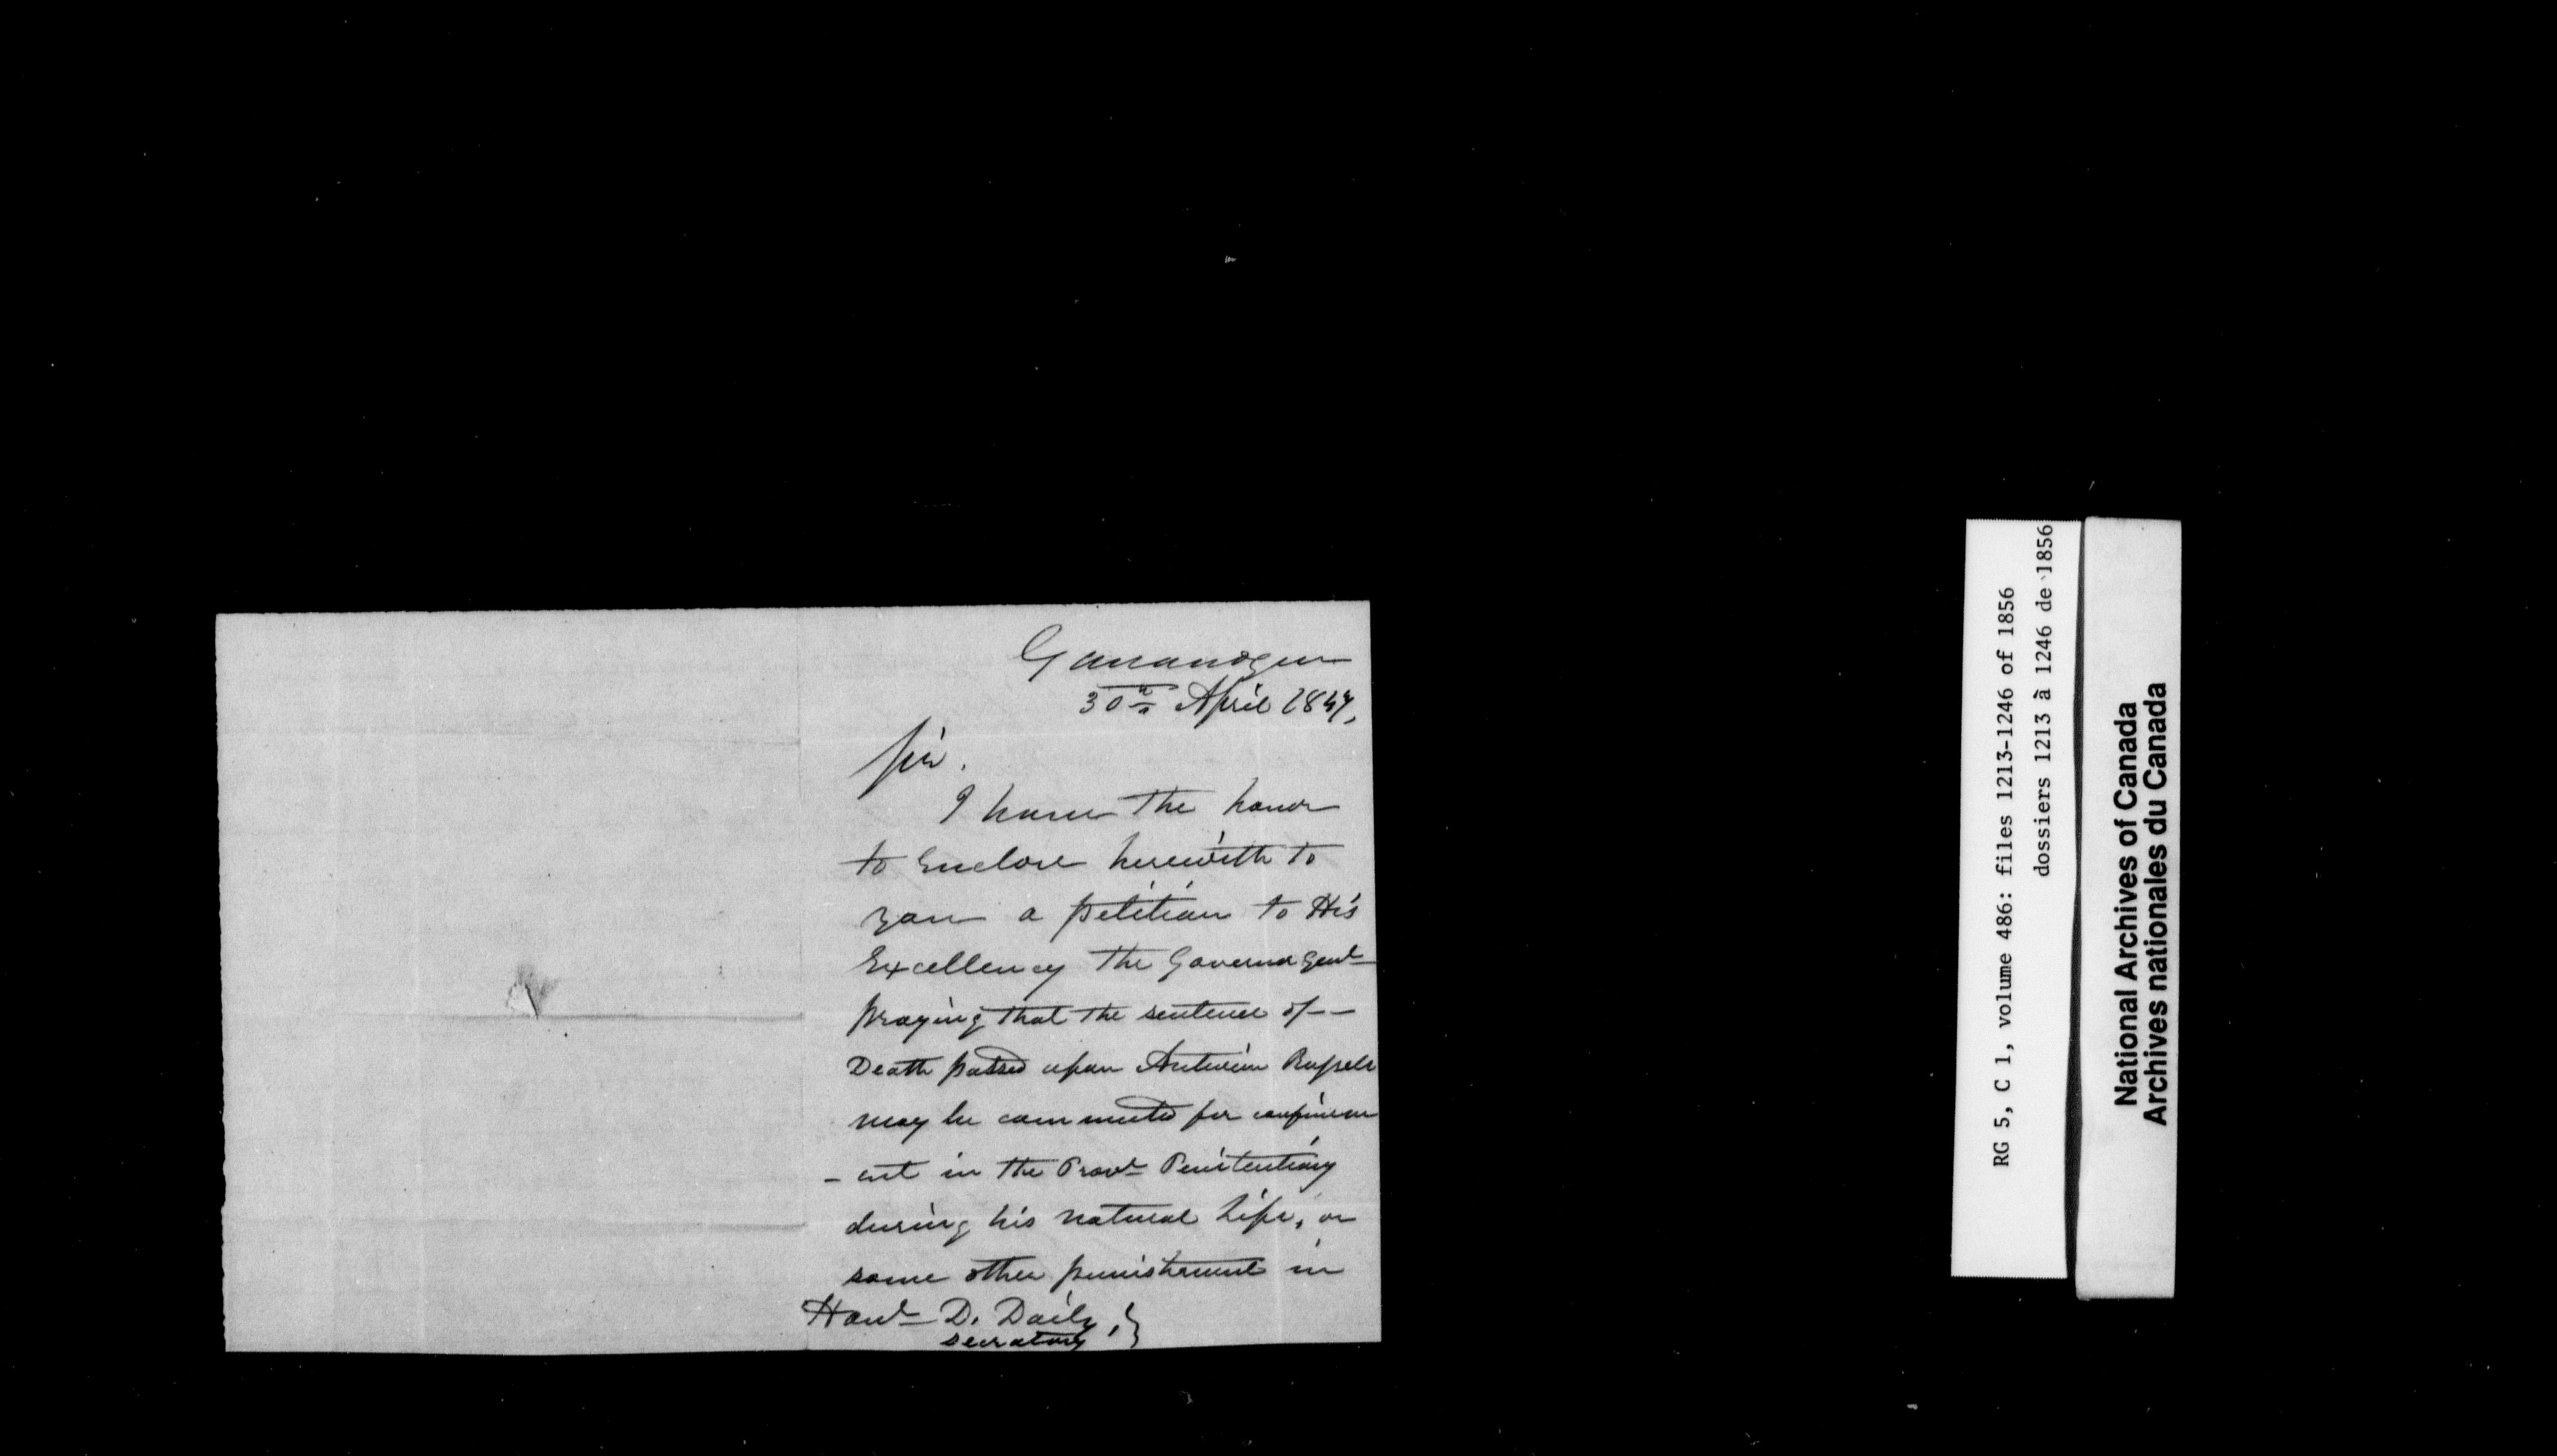 Gananoque
30th April 1847,
Sir.
I have the honor
to Enclose herewith to
you a petition to His
Excellency the Governor Genl
praying that the sentence of--
Death passed upon Antwine Russell
may be commuted for confinem
- ent in the Provl Penitentiary
during his natural life, or
some other punishment in
Honl D. Daily,}
secretary
RG 5, C 1, volume 486: files 1213-1246 of 1856
dossiers 1213 à 1246 de 1856
National Archives of Canada
Archives nationales du Canada